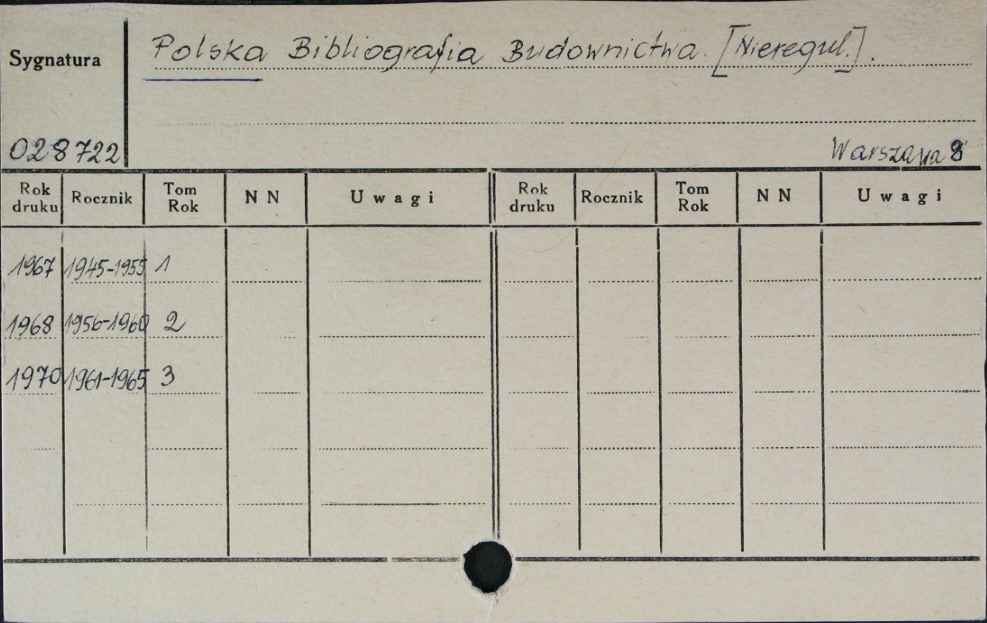 Sygnatura
Polska Bibliografia Budownictwa. [Nieregul.].
028722
Warszawa 8°
Rok druku Rocznik Tom Rok NN Uwagi Rok druku Rocznik Tom Rok NN Uwagi
1967 1945-1955 1
1968 1956-1960 2
1970 1961-1965 3